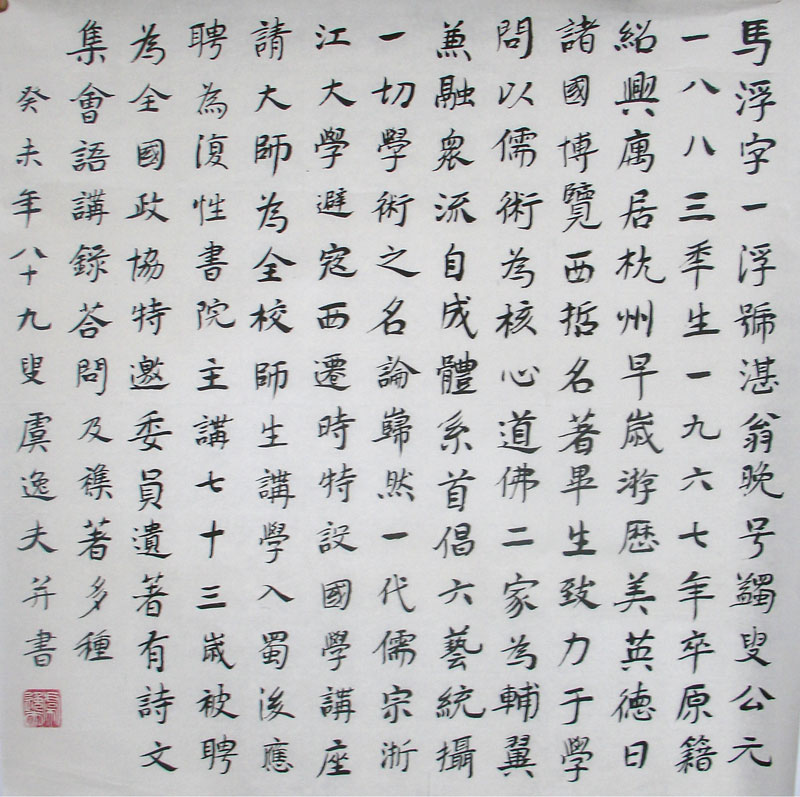 馬浮字一浮號湛翁晚号蠲叟公元
一八八三年生一九六七年卒原籍
紹興寓居杭州早歲游歷美英德日
諸國博覽西哲名著畢生致力于學
問以儒術為核心道佛二家為輔翼
兼融衆流自成體系首倡六藝統攝
一切學術之名論巋然一代儒宗浙
江大學避寇西遷時特設國學講座
請大師為全校師生講學入蜀後應
聘為復性書院主講七十三歲被聘
為全國政協特邀委員遺著有詩文
集會語講錄荅問及襍著多種
癸未年八十九叟虞逸夫并書